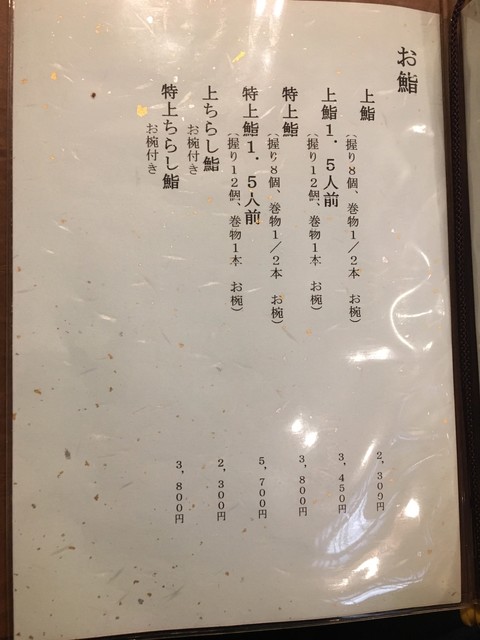 お鮨
上鮨
(握り8個、巻物1/2本 お椀)
2,300円
上鮨1.5人前
(握り12個、巻物1本 お椀)
3,450円
特上鮨
(握り8個、巻物1/2本 お椀)
3,800円
特上鮨1.5人前
(握り12個、巻物1本 お椀)
5,700円
上ちらし鮨
お椀付き
2,300円
特上ちらし鮨
お椀付き
3,800円